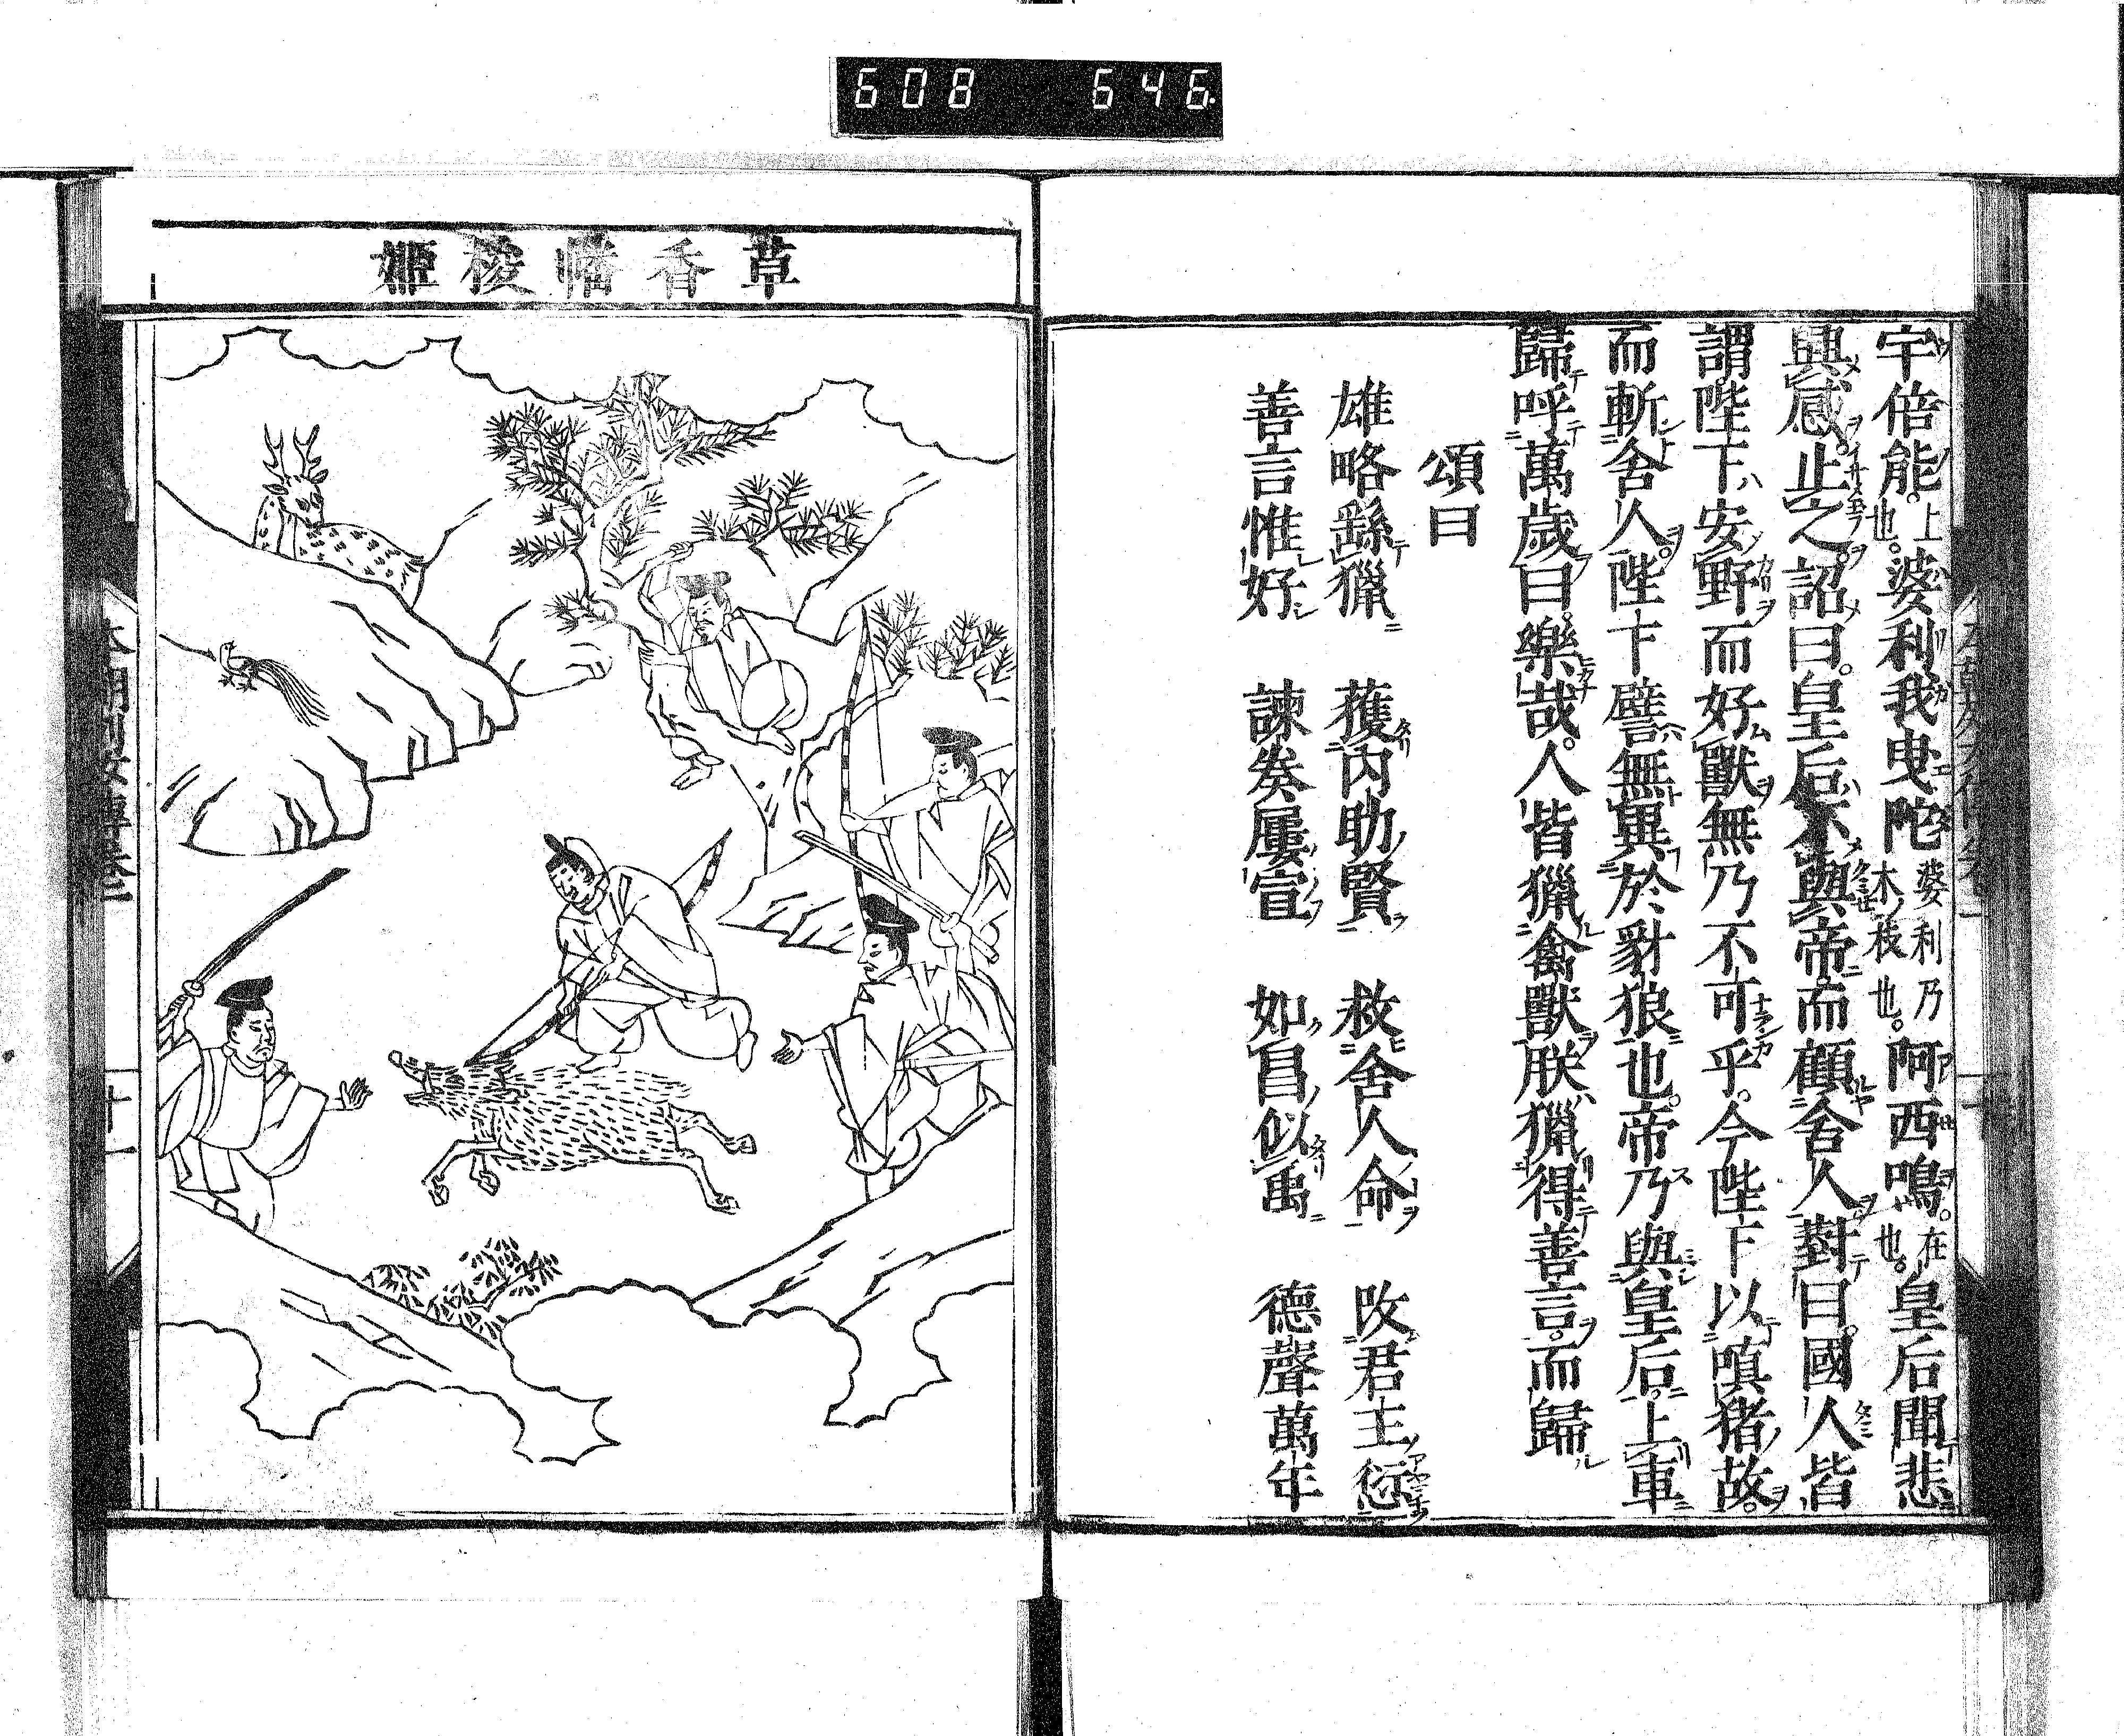 608 646
宇倍能。上也。婆利我曳陀婆利乃木ノ枝也。阿西嗚。在也。皇后聞悲
興感止之。詔曰。皇后不與帝而顧舍人對曰。國人皆
謂陛下安野而好獸無乃不可乎。今陛下以嗔猪故。
而斬舍人。陛下譬無異於豺狼也。帝乃與皇后上車
歸呼萬歲曰。樂哉。人皆獵禽獸朕獵得善言而歸
頌曰
雄略繇獵 獲內助賢 救舍人命 改君主愆
善言惟好 諫奏屢宣 如昌似禹 德聲萬年
草香幡梭姬
十一